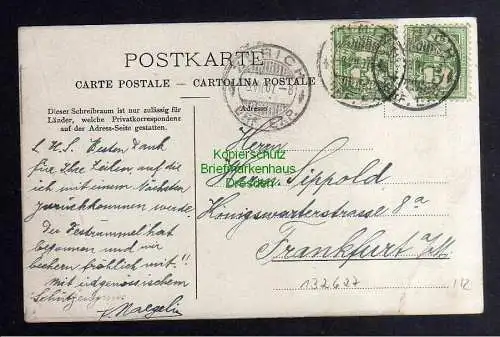 POSTKARTE
CARTE POSTALE – CARTOLINA POSTALE
Dieser Schreibraum ist nur zulässig für
Länder, welche Privatkorrespondenz
auf der Adress-Seite gestatten.
Adresse
L. H. S. Besten Dank
für Ihre Zeilen, auf die
ich mit einem Nächsten
zurückkommen werde.
Der Festrummel hat
begonnen und wir
bechern fröhlich mit!!
Mit eidgenössischem
Herrn
Herm. Sippold
Königswarterstrasse 8a
Frankfurt a/M.
132627
Kopierschutz
Briefmarkenhaus
Dresden